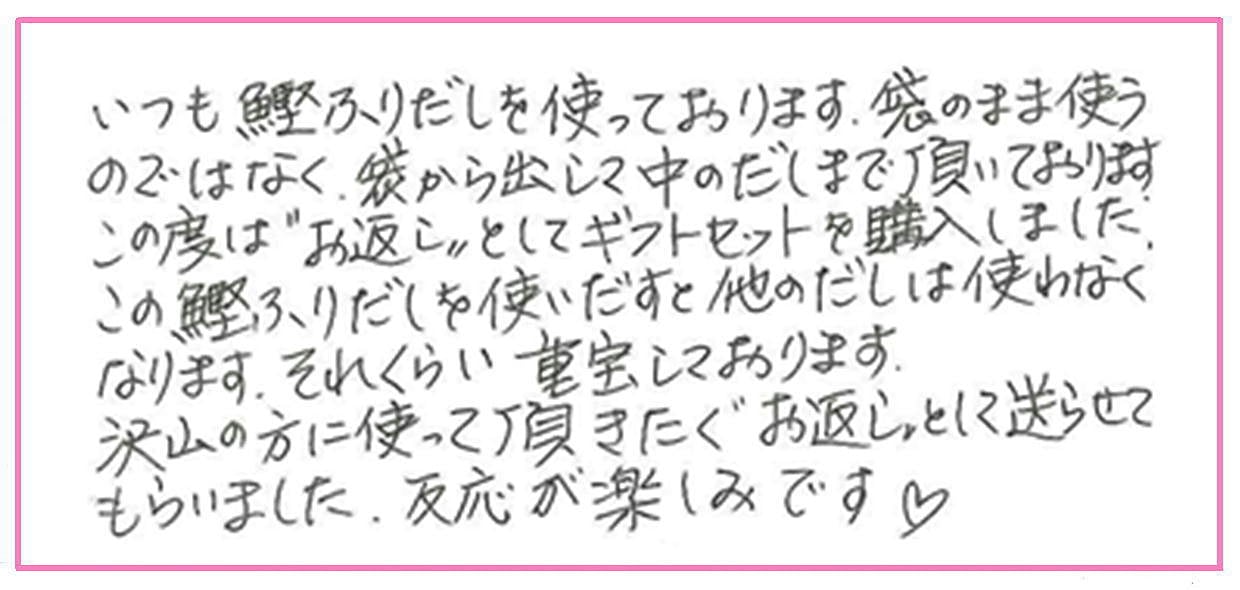 いつも鰹ふりだしを使っております.袋のまま使う
のではなく.袋から出して中のだしまで頂いております
この度は"お返し〃としてギフトセットを購入しました.
この鰹ふりだしを使いだすと他のだしは使わなく
なります.それくらい重宝しております.
沢山の方に使って頂きたく"お返し〃として送らせて
もらいました.反応が楽しみです♡